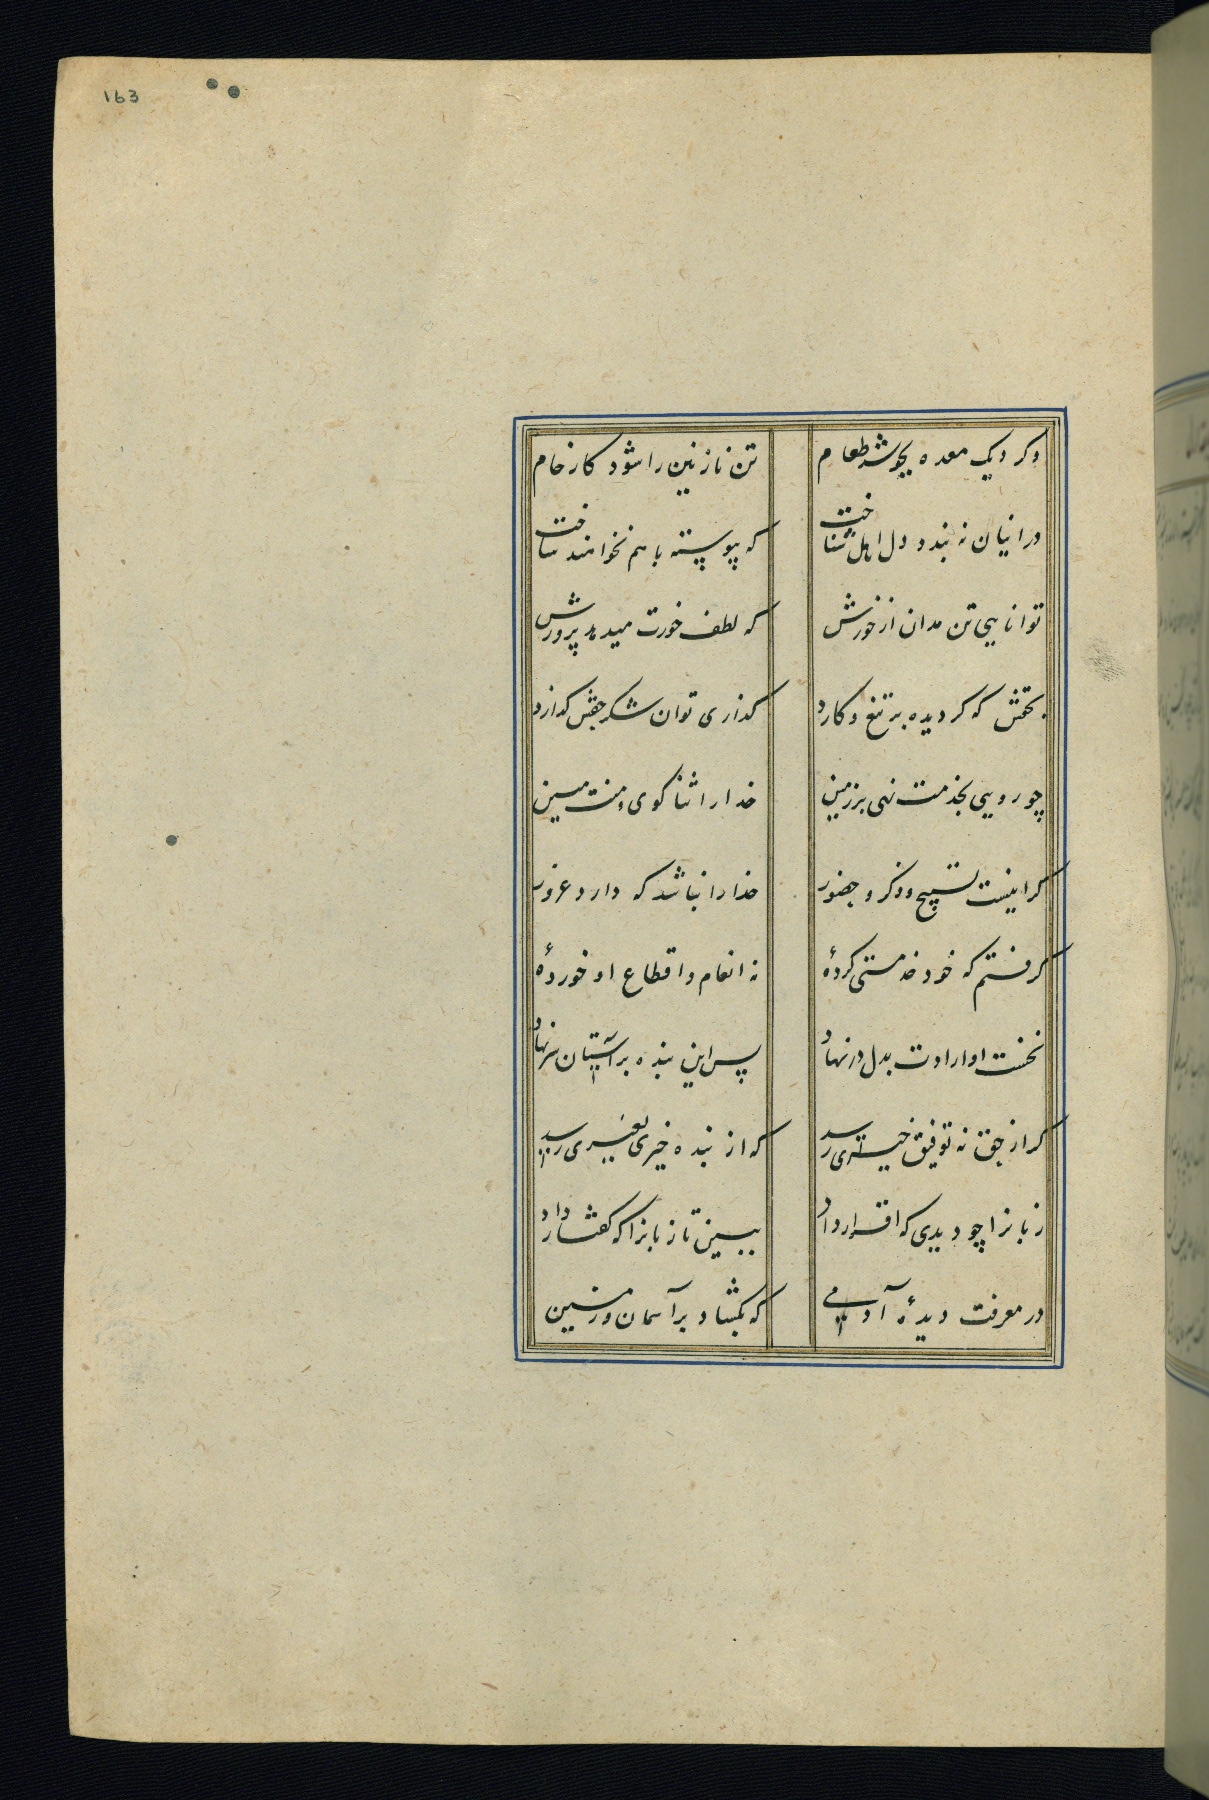 163
وکر دیک معده بجوشد طعام تن نازنین را شود کار خام
در اینان نه بندد دل اهل شناخت که پیوسته با هم نخواهند ساخت
توانایی تن مدان از خورش که لطف خورت میدهد پرورش
بحقش که کر دیده بر تیغ و کارد کذاری توان شکر حقش کذارد
چو رویی بخدمت نهی بر زمین خدا را ثنا کوی و منت مبین
کرا نیست تسبیح و ذکر و حضور خدا را نباشد که دارد غرور
کرفتم که خود خدمتی کردهٔ نه انعام و اقطاع او خوردهٔ
نخست او ارادت بدل در نهاد پس این بنده بر آستان سر نهاد
کر از حق نه توفیق خیری رسد که از بنده خیری بغیری رسد
زبانرا چو دیدی که اقرار داد ببین تا زبانرا که کفتار داد
در معرفت دیدهٔ آدمی که بکشاد بر آسمان و زمین